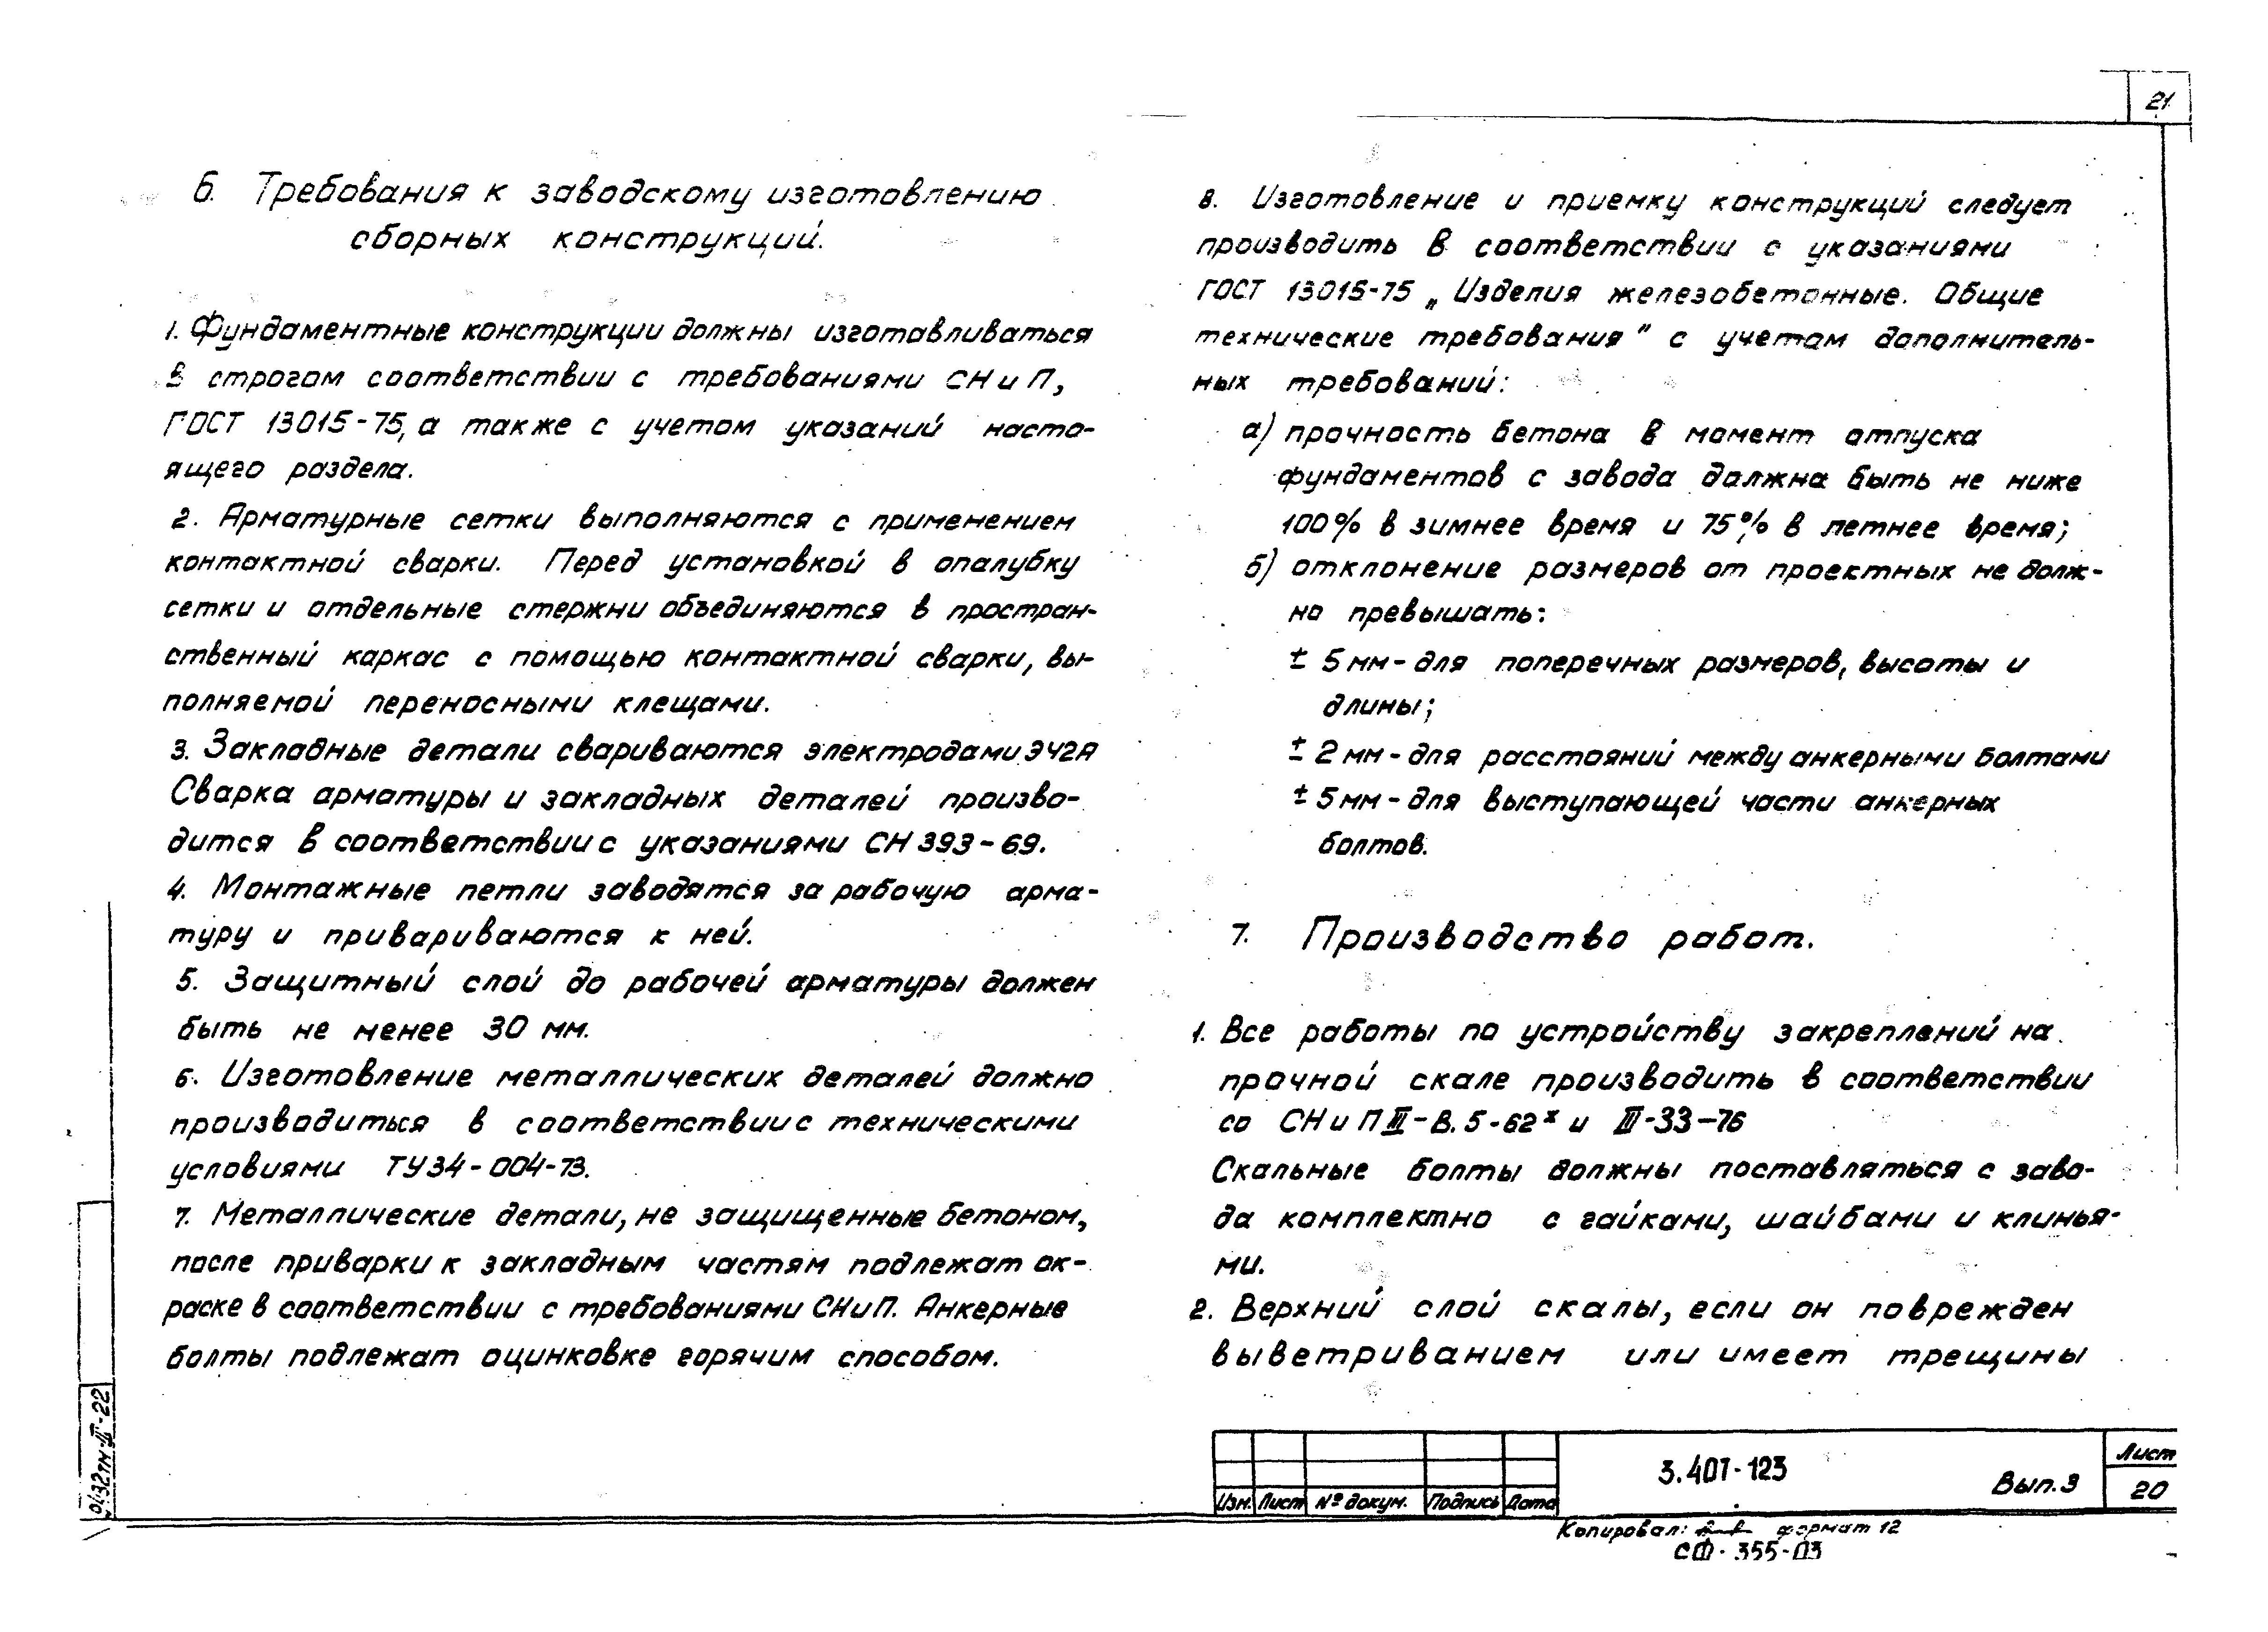 21
6. Требования к заводскому изготовлению
сборных конструкций.
1. Фундаментные конструкции должны изготавливаться
в строгом соответствии с требованиями СНиП,
ГОСТ 13015-75, а также с учетом указаний насто-
ящего раздела.
2. Арматурные сетки выполняются с применением
контактной сварки. Перед установкой в опалубку
сетки и отдельные стержни объединяются в простран-
ственный каркас с помощью контактной сварки, вы-
полняемой переносными клещами.
3. Закладные детали свариваются электродами Э42А
Сварка арматуры и закладных деталей произво-
дится в соответствии с указаниями СН 393-69.
4. Монтажные петли заводятся за рабочую арма-
туру и привариваются к ней.
5. Защитный слой до рабочей арматуры должен
быть не менее 30 мм.
6. Изготовление металлических деталей должно
производиться в соответствии с техническими
условиями ТУ34-004-73.
7. Металлические детали, не защищенные бетоном,
после приварки к закладным частям подлежат ок-
раске в соответствии с требованиями СНиП. Анкерные
болты подлежат оцинковке горячим способом.
8. Изготовление и приемку конструкций следует
производить в соответствии с указаниями
ГОСТ 13015-75 „Изделия железобетонные. Общие
технические требования" с учетом дополнитель-
ных требований:
а) прочность бетона в момент отпуска
фундаментов с завода должна быть не ниже
100% в зимнее время и 75% в летнее время;
б) отклонение размеров от проектных не долж-
но превышать:
± 5 мм - для поперечных размеров, высоты и
длины;
± 2 мм - для расстояний между анкерными болтами
± 5 мм - для выступающей части анкерных
болтов.
7. Производство работ.
1. Все работы по устройству закреплений на
прочной скале производить в соответствии
со СНиП III-В.5-62х и III-33-76
Скальные болты должны поставляться с заво-
да комплектно с гайками, шайбами и клинья-
ми.
2. Верхний слой скалы, если он поврежден
выветриванием или имеет трещины
Изм. Лист № докум. Подпись Дата
3.407-123
Вып. 3
Лист
20
Копировал: формат 12
СФ-355-03
9432тм-III-22